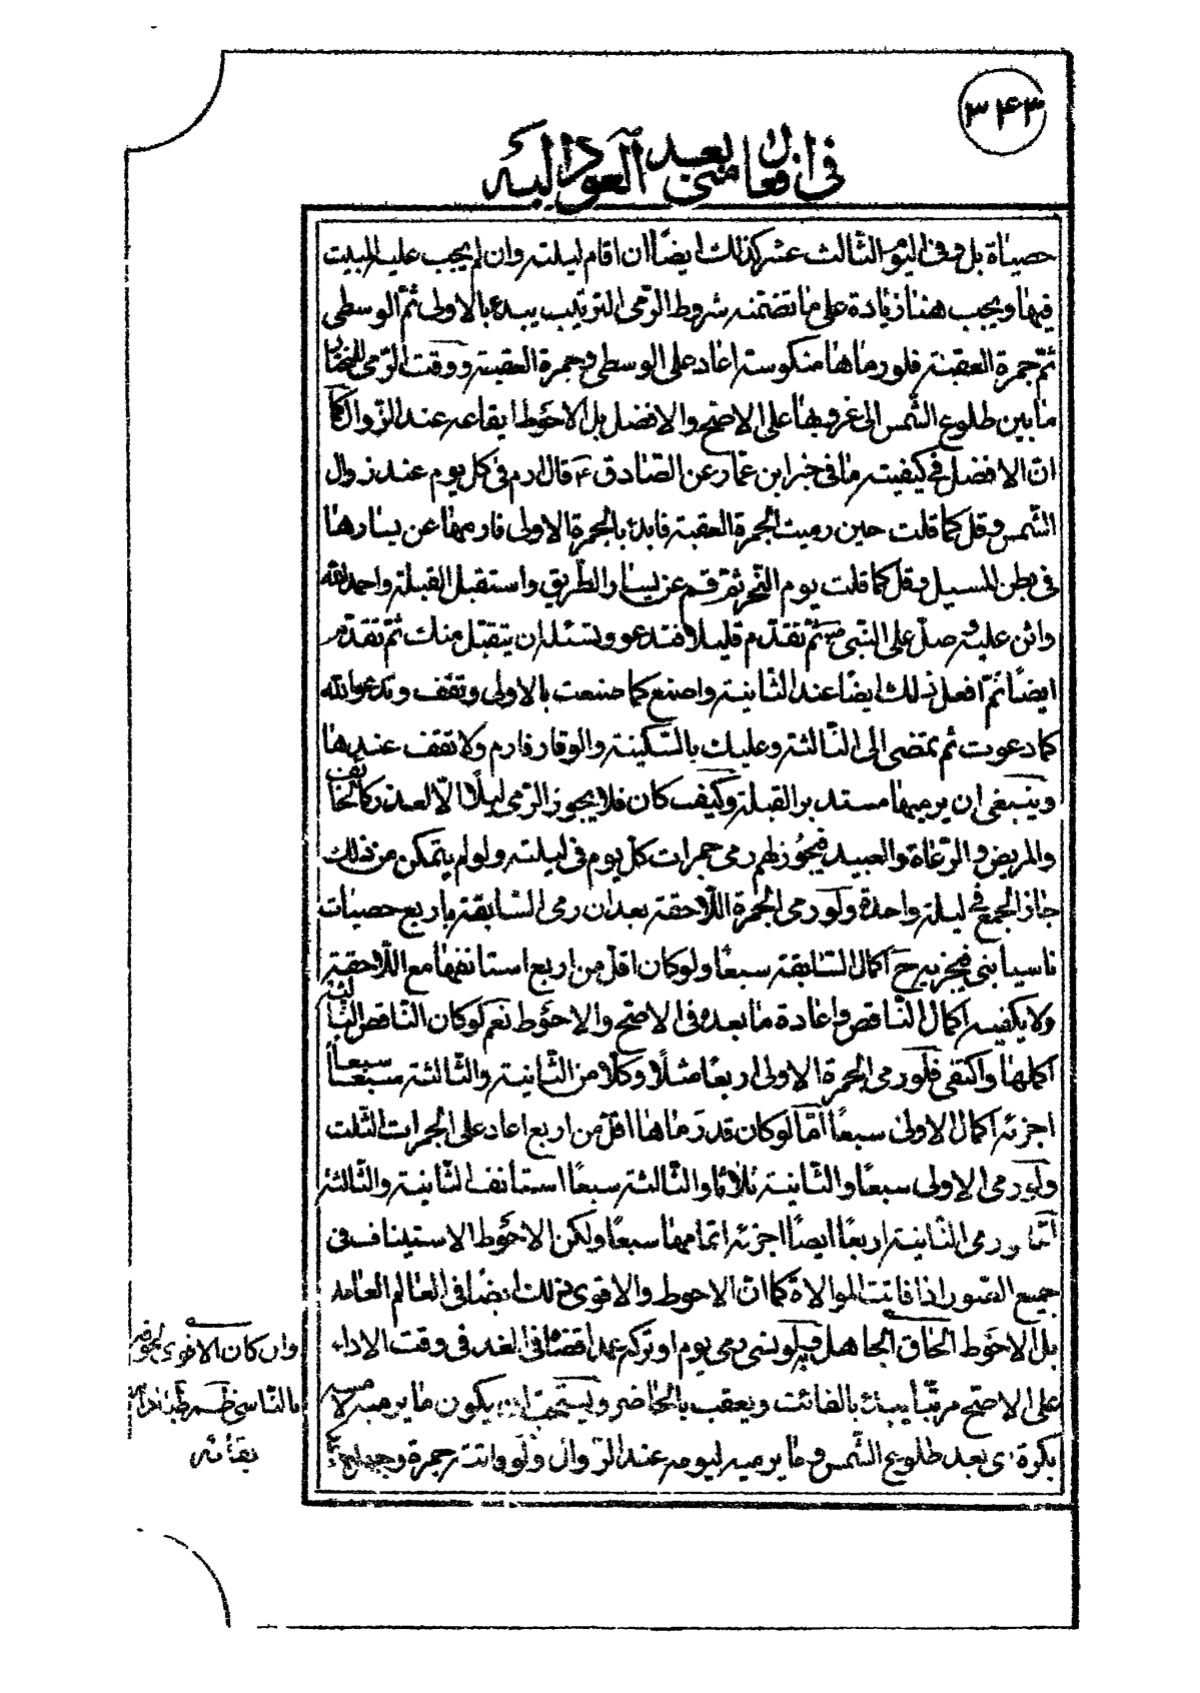 ٣٤٣
فى افعال منى بعد العود اليه
حصياة بل وفى اليوم الثالث عشر كذلك ايضًا ان اقام ليلته وان لم يجب عليه المبيت
فيها ويجب هنا زيادة على ما تضمنه شروط الرّمى الترتيب يبدء بالاولى ثمّ الوسطى
ثمّ جمرة العقبة فلو رماها منكوسة اعاد على الوسطى وجمرة العقبة ووقت الرّمى للمختار
ما بين طلوع الشّمس الى غروبها على الاصحّ والافضل بل الاحوط ايقاعه عند الزّوال كما
انّ الافضل فى كيفيته ما فى خبر ابن عمّار عن الصّادق ع قال ارم فى كل يوم عند زوال
الشّمس وقل كما قلت حين رميت الجمرة العقبة فابدء بالجمرة الاولى فارمها عن يسارها
فى بطن المسيل وقل كما قلت يوم النّحر ثمّ قم عن يسار الطّريق واستقبل القبلة واحمد الله
واثن عليه وصلّ على النّبى ص ثمّ تقدّم قليلا فتدعو وتسئله ان يتقبّل منك ثمّ تقدّم
ايضًا ثمّ افعل ذلك ايضًا عند الثّانية واصنع كما صنعت بالاولى وتقف وتدعو الله
كما دعوت ثم تمضى الى الثّالثة وعليك بالسّكينة والوقار فارم ولا تقف عندها
وينبغى ان يرميها مستدبر القبلة وكيف كان فلا يجوز الرّمى ليلًا الّا لعذر كالخائف
والمريض والرّعاة والعبيد فيجوز لهم رمى جمرات كلّ يوم فى ليلته ولو لم يتمكّن من ذلك
جاز الجمع فى ليلة واحدة ولو رمى الجمرة اللّاحقة بعد ان رمى السّابقة باربع حصيات
ناسيا بنى فيجزيه ح اكمال السّابقة سبعًا ولو كان اقلّ من اربع استانفها مع اللّاحقة
ولا يكفيه اكمال النّاقص واعادة ما بعده فى الاصحّ والاحوط نعم لو كان النّاقص الثالثة
اكملها واكتفى فلو رمى الجمرة الاولى اربعًا مثلًا وكلّا من الثّانية والثّالثة سبعًا سبعًا
اجزئه اكمال الاولى سبعًا امّا لو كان قد رماها اقلّ من اربع اعاد على الجمرات الثّلث
ولو رمى الاولى سبعًا والثّانية ثلاثا والثّالثة سبعًا استانف الثّانية والثّالثة
امّا لو رمى الثّانية اربعًا ايضًا اجزئه اتمامها سبعًا ولكن الاحوط الاستيناف فى
جميع الصّور اذا فاتت الموالاة كما انّ الاحوط والاقوى ذلك ايضًا فى العالم العامد
بل الاحوط الحاق الجاهل به ولو نسى رمى يوم او تركه عمدا قضاه فى الغد فى وقت الاداء
على الاصحّ مرتّبًا يبدء بالفائت ويعقب بالحاضر ويستحبّ ان يكون ما يرميه لامسه
بكرة اى بعد طلوع الشّمس وما يرميه ليومه عند الزّوال ولو فاتته جمرة وجهلها
وان كان الاقوى لحوقه
بالنّاسى
بقائه